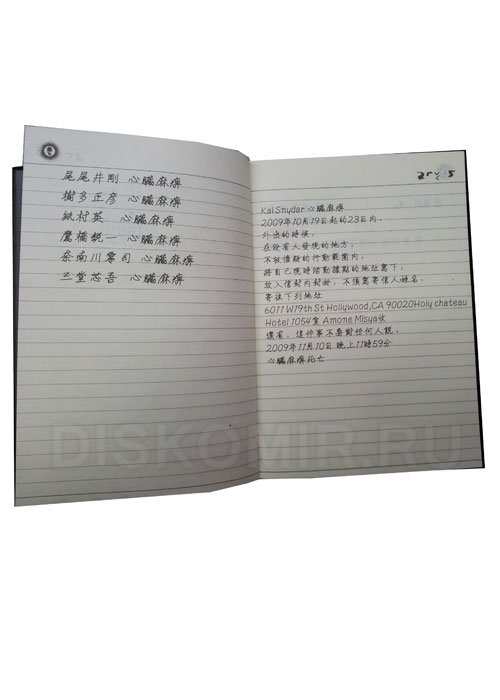 尾尾井剛 心臟麻痹
樹多正彥 心臟麻痹
紙村英 心臟麻痹
鷹橋銳一 心臟麻痹
奈南川零司 心臟麻痹
三堂芯吾 心臟麻痹
Kal Snydar 心臟麻痹
2009年10月19日起的23日内,
外出的時候,
在沒有人發現的地方,
不被懷疑的行動範圍内,
將自己現時活動據點的地址寫下,
放入信封内封好, 不須寫寄信人姓名,
寄往下列地址
6011 W19th St Hollywood,CA 90020Holy chateau
Hotel 1054室 Amone Misya收
還有, 這件事不要對任何人說。
2009年11月10日 晚上11時59分
心臟麻痹死亡
DISKOMIR.RU